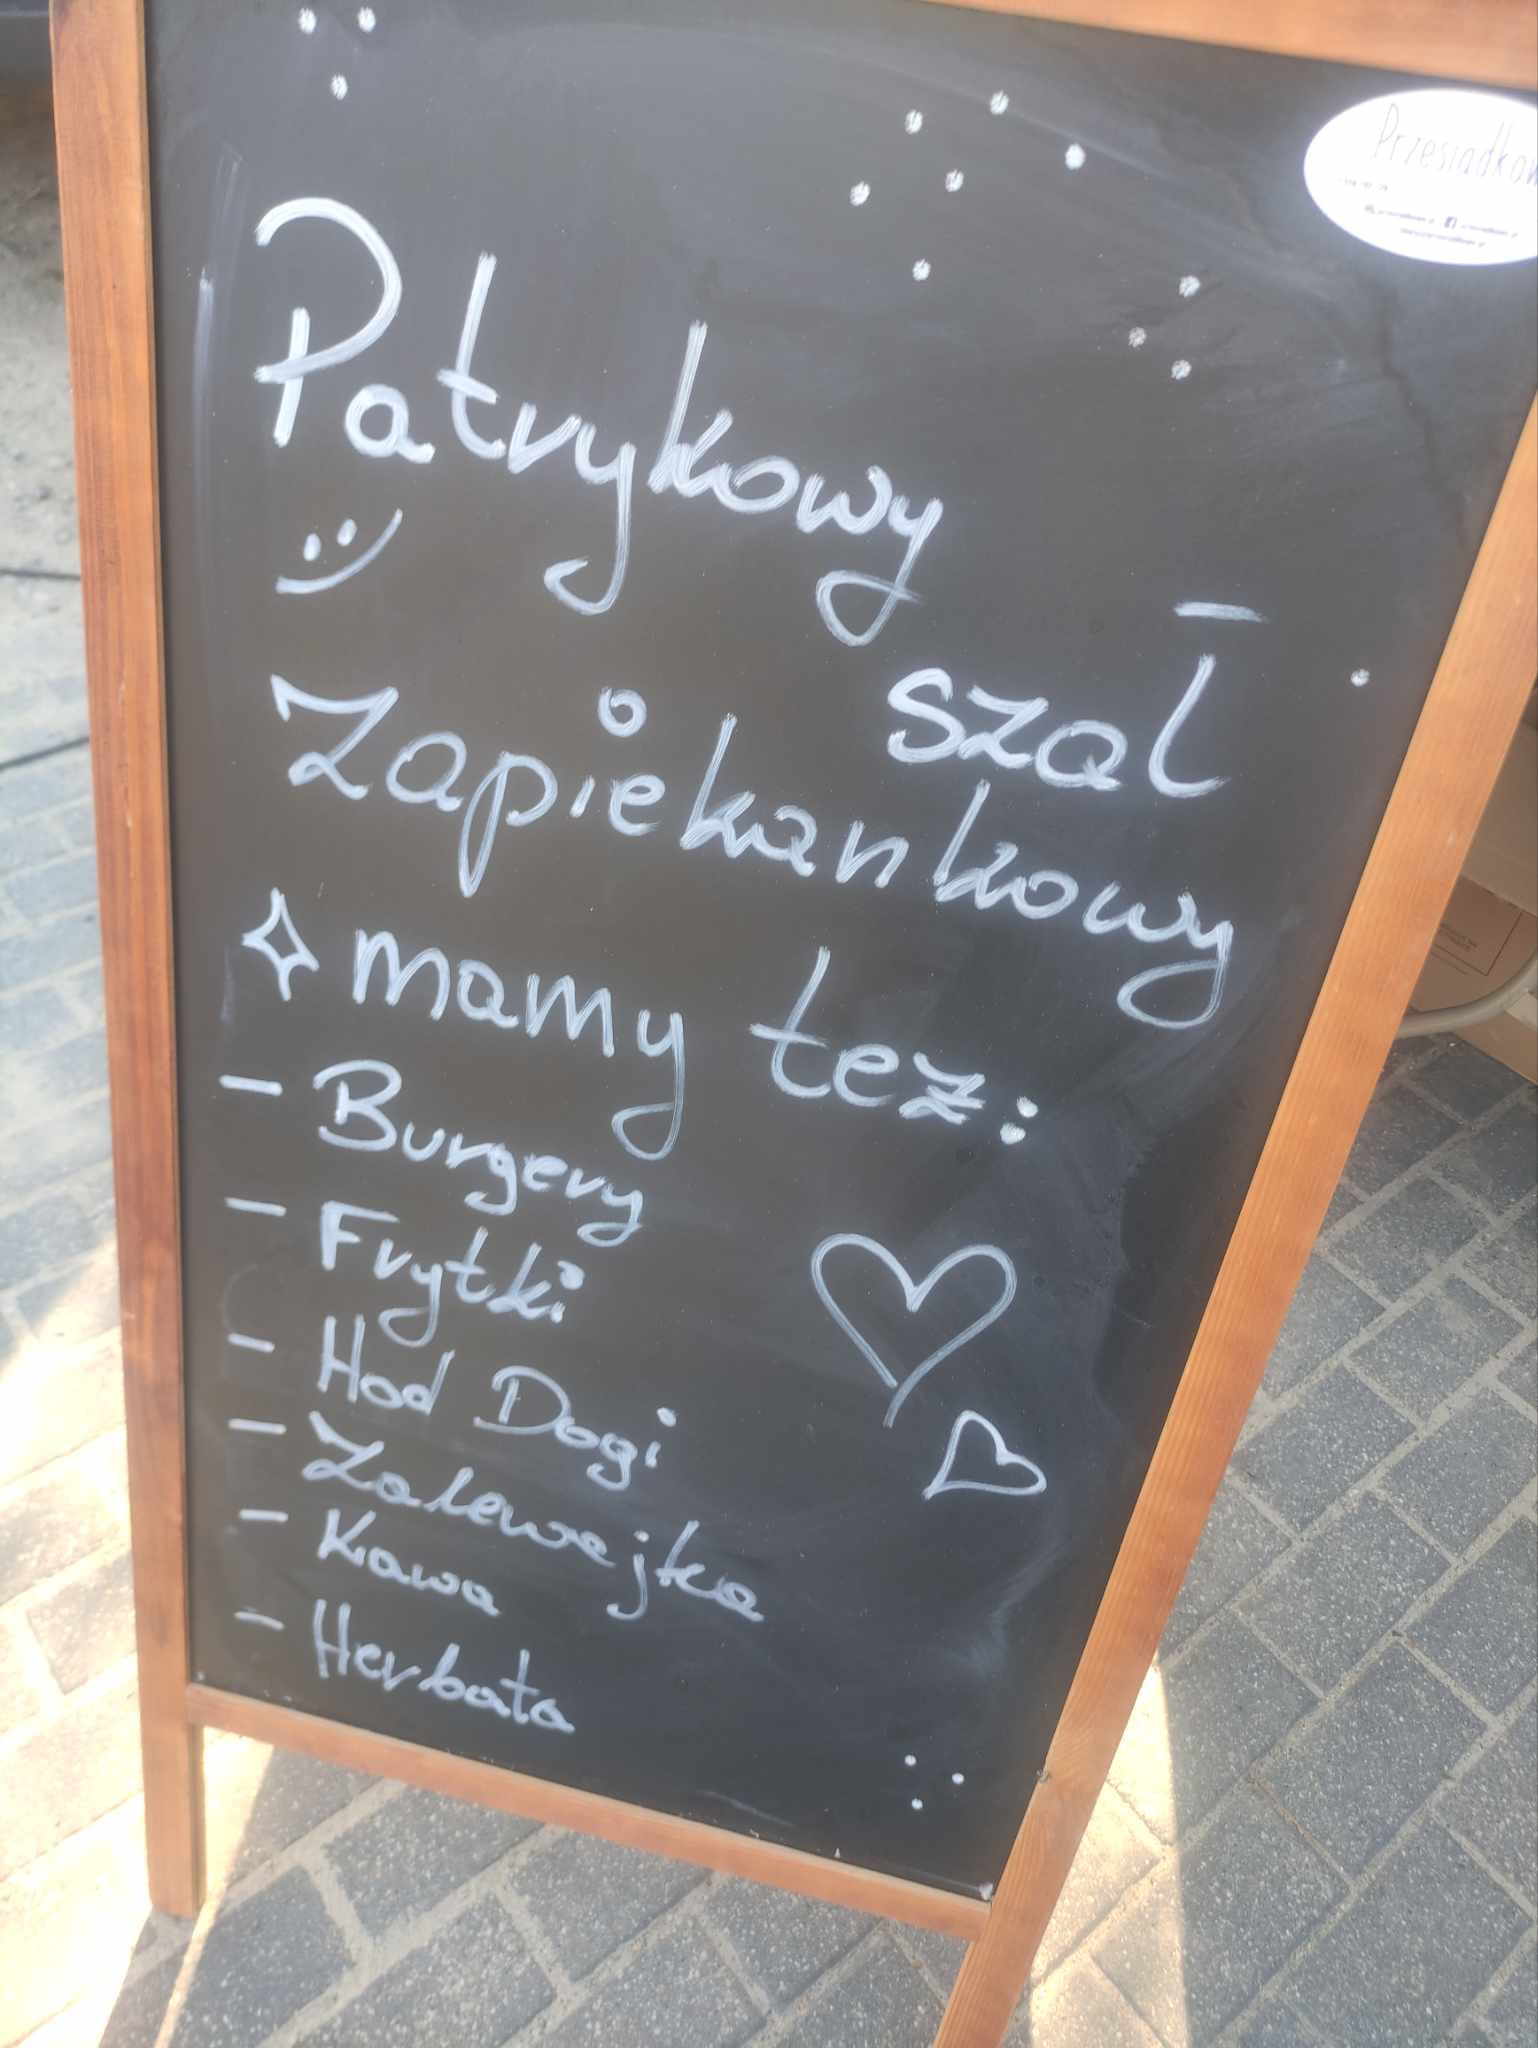 Przesiadkow
Patrykowy
szał
Zapiekankowy
mamy też:
- Burgery
- Frytki
- Hod Dogi
- Zalewajka
- Kawa
- Herbata